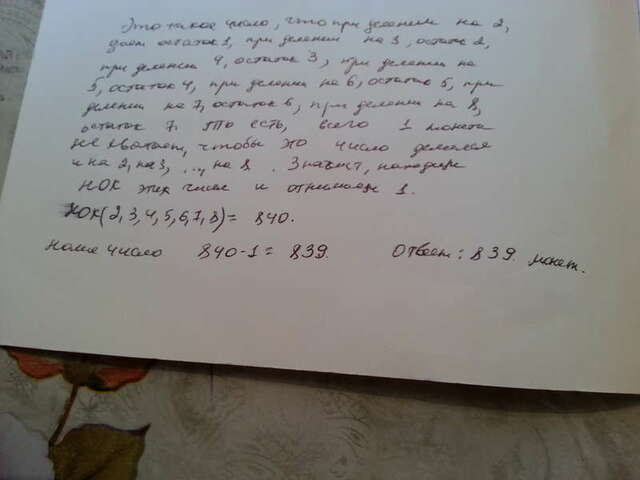 Это такое число, что при делении на 2,
дает остаток 1, при делении на 3, остаток 2,
при делении 4, остаток 3, при делении на
5, остаток 4, при делении на 6, остаток 5, при
делении на 7, остаток 6, при делении на 8,
остаток 7. То есть, всего 1 монета
не хватает, чтобы это число делилось
и на 2, на 3, ..., на 8. Значит, находим
НОК этих чисел и отнимаем 1.
НОК(2,3,4,5,6,7,8)= 840.
наше число 840-1= 839. Ответ: 839 монет.